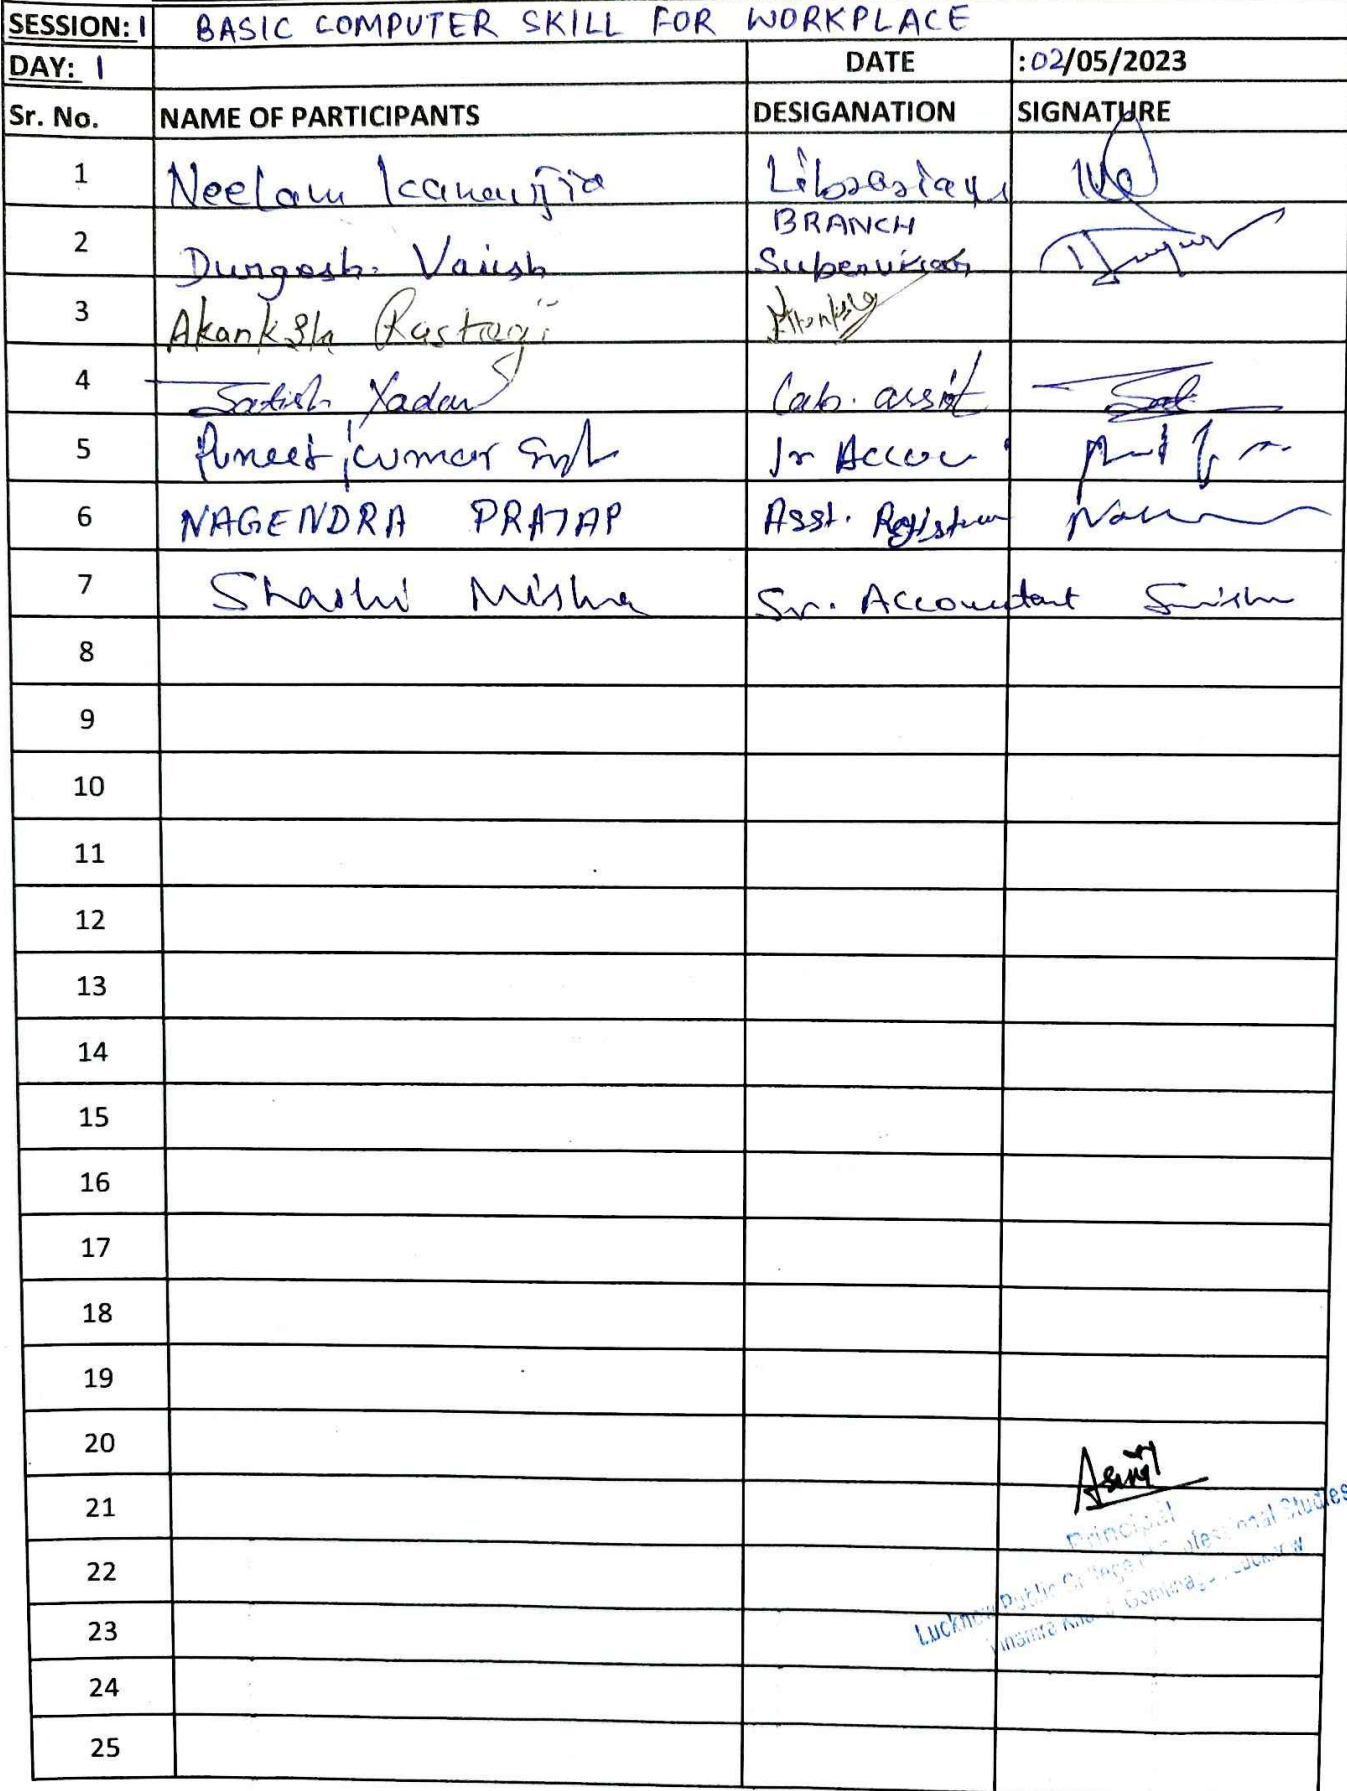 SESSION: 1 BASIC COMPUTER SKILL FOR WORKPLACE
DAY: 1 DATE :02/05/2023
Sr. No. NAME OF PARTICIPANTS DESIGANATION SIGNATURE
1 Neelam Kanaujia Librarian
2 Durgesh Vaish BRANCH
Supervisor
3 Akanksha Rastogi
4 Satish Yadav Lab. assist
5 Puneet Kumar Jr Accou
6 NAGENDRA PRATAP Asst. Registrar
7 Shashi Mishra Sr. Accountant
8
9
10
11
12
13
14
15
16
17
18
19
20
21
Principal
22
Lucknow Public College of Professional Studies
23
24
25